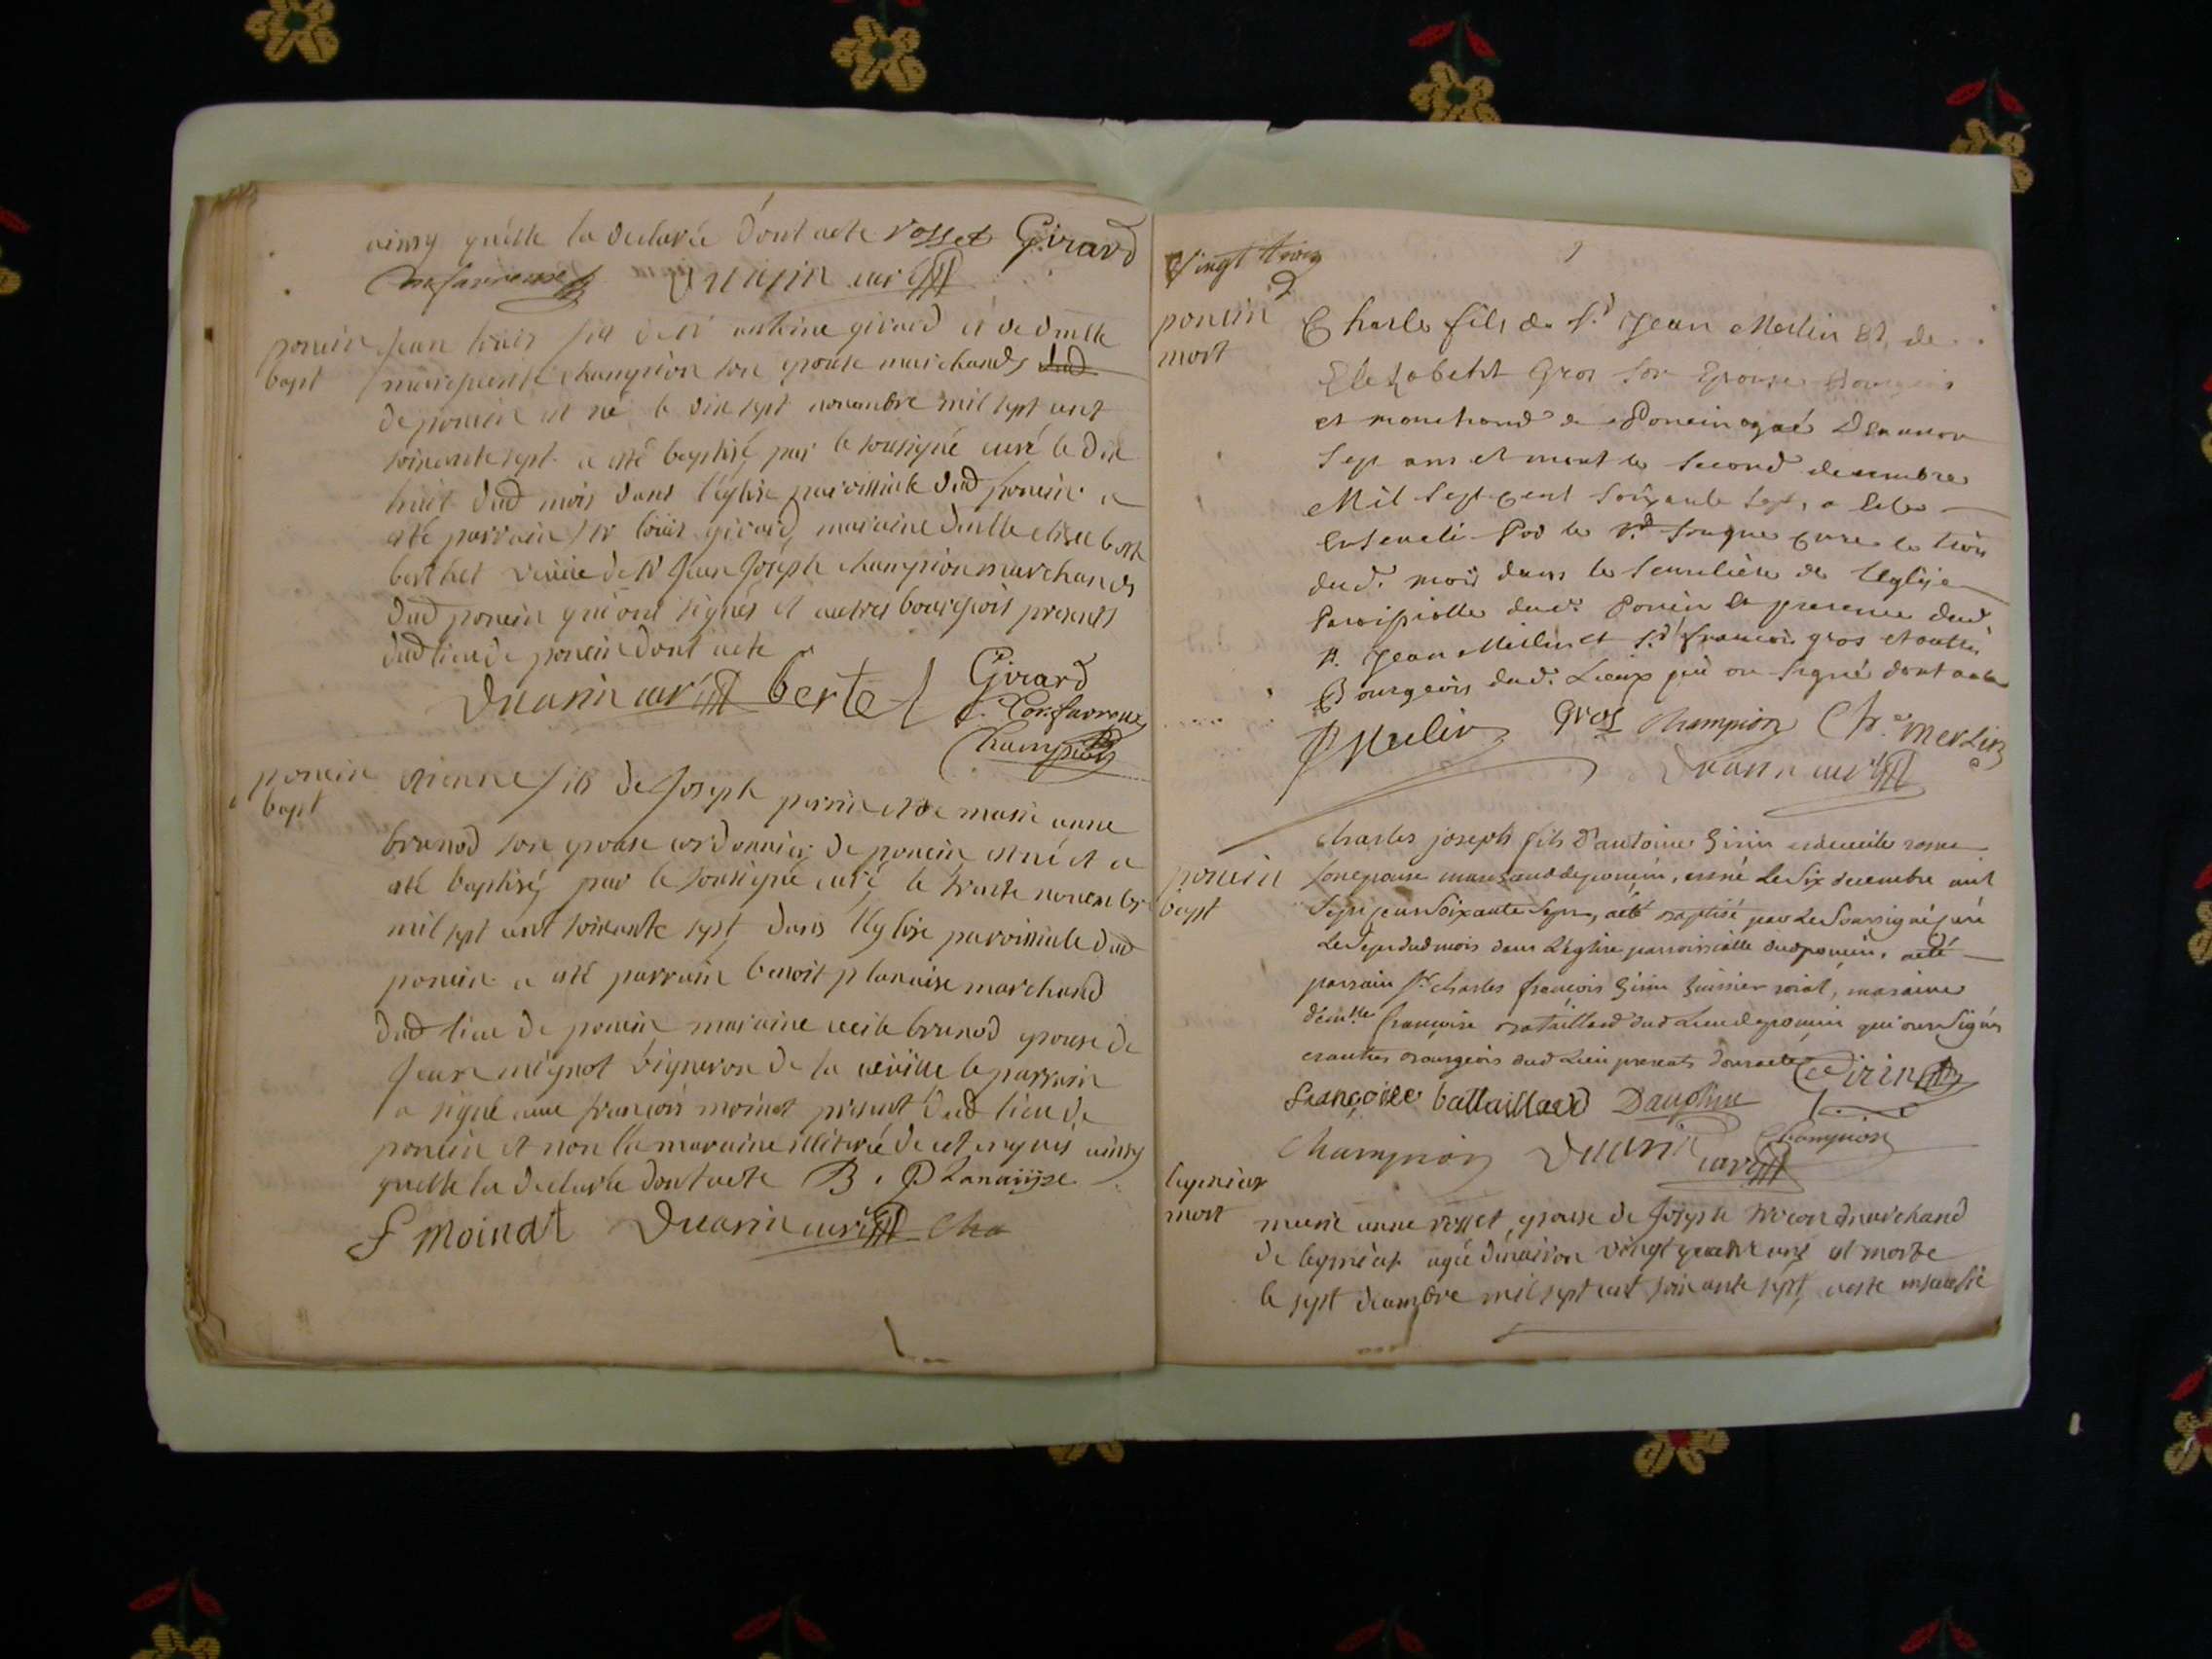 ainsy quelle la declaré dont acte rosset Girard
Duarin curé
poncin
bapt
jean louis fils de sr antoine girard et de dmlle
marguerite champion son epouse marchands dud
de poncin est né le dix sept novembre mil sept cent
soixante sept a eté baptisé par le soussigné curé le dix
huit dud mois dans l'église paroissiale dud poncin a
eté parrain sr louis girard, maraine dmlle
berthet veuve de sr jean joseph champion marchands
dud poncin qui ont signés et autres bourgeois presents
dud lieu de poncin dont acte
Duarin curé bertet Girard
Champion
poncin
bapt
etienne fils de joseph perrin et de marie anne
brunod son epouse cordonnier de poncin est né et a
eté baptisé par le soussigné curé le trente novembre
mil sept cent soixante sept dans l'église paroissiale dud
poncin a eté parrain benoit planaise marchand
dud lieu de poncin maraine cecile brunod epouse de
jean mignot vigneron de la le parrain
a signé avec françois moinat present dud lieu de
poncin et non la maraine illitérée de ce enquis ainsy
quelle la declaré dont acte B. Planaijse
f Moinat Duarin curé Cha
Vingt trois
poncin
mort
Charle fils de sr. Jean Merlin Et de
Elezabeht Gros son Epouse Bourgeois
et marchand de Poncin agaé Denviron
Sept ans et mort le second decembre
Mil Sept Cent Soixante Sept, a Este
Enseveli Par le Sousigne Cure le trois
dud. mois dans le Semetière de l'Eglise
Paroissialle dud. Poncin En presence dud.
sr. Jean Merlin et sr. francois gros et autres
Bourgeois dud. Lieux qui on signé dont acte
Merlin Gros Champion Ch. Merlin
Duarin curé
poncin
bapt
Charles joseph fils d'antoine Girin et de cecile
son epouse marchand de poncin, est né Le Six decembre mil
Sept cent Soixante Sept, a été baptisé par Le Soussigné curé
Le Sept dud mois dans L'église parroissialle dud poncin, a été
parrain sr charles françois Girin huissier roial, maraine
demlle françoise bataillard dud Lieu de poncin qui ont Signés
et autres bourgeois dud Lieu presents dont acte Girin
françoise battaillard Dauphin
Champion Duarin Champion
curé
leyment
mort
marie anne rosset epouse de joseph marchand
de leyment agée d'environ vingt quatre ans est morte
le sept decembre mil sept cent soixante sept, a esté ensevelie